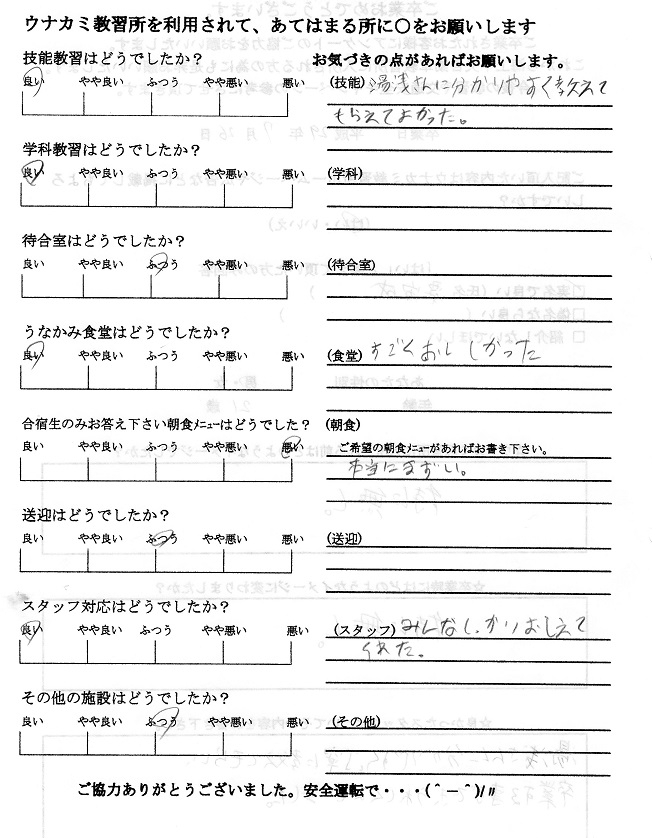 ウナカミ教習所を利用されて、あてはまる所に○をお願いします
技能教習はどうでしたか？ お気づきの点があればお願いします。
良い やや良い ふつう やや悪い 悪い (技能) 湯浅さんに分かりやすく教えて
もらえてよかった。
学科教習はどうでしたか？
良い やや良い ふつう やや悪い 悪い (学科)
待合室はどうでしたか？
良い やや良い ふつう やや悪い 悪い (待合室)
うなかみ食堂はどうでしたか？
良い やや良い ふつう やや悪い 悪い (食堂) すごくおいしかった
合宿生のみお答え下さい朝食ﾒﾆｭｰはどうでしたか？ (朝食)
良い やや良い ふつう やや悪い 悪い ご希望の朝食ﾒﾆｭｰがあればお書き下さい。
本当にまずい。
送迎はどうでしたか？
良い やや良い ふつう やや悪い 悪い (送迎)
スタッフ対応はどうでしたか？
良い やや良い ふつう やや悪い 悪い (スタッフ) みんなしっかりおしえて
くれた。
その他の施設はどうでしたか？
良い やや良い ふつう やや悪い 悪い (その他)
ご協力ありがとうございました。安全運転で・・・(＾－＾)/〃